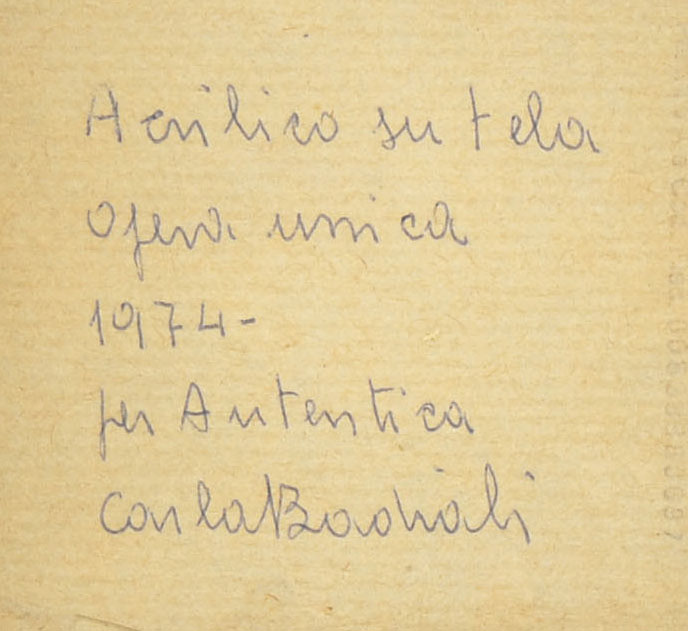 Acrilico su tela
opera unica
1974-
per Autentica
Carla Badiali